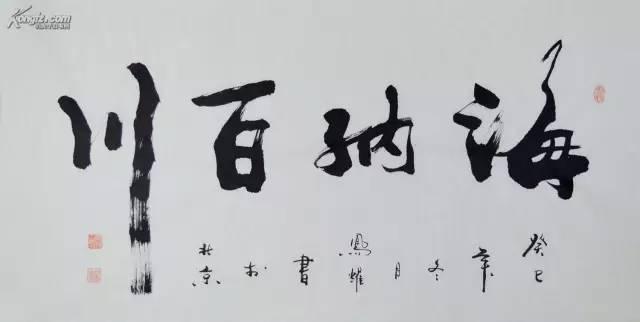 海纳百川
癸巳年冬月鳳耀書於北京
Kongfz.com